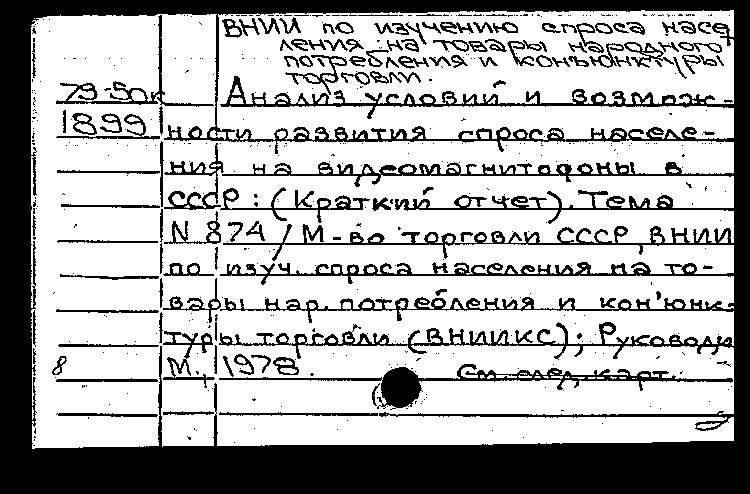 ВНИИ по изучению спроса насе
ления на товары народного
потребления и конъюнктуры
торговли.
79-50к Анализ условий и возмож-
1899 ности развития спроса населе-
ния на видеомагнитофоны в
СССР : (Краткий отчет). Тема
N 874 / М-во торговли СССР, ВНИИ
по изуч. спроса населения на то-
вары нар. потребления и кон'юнк-
туры торговли (ВНИИКС); Руководи
8 М., 1978. См. след. карт.